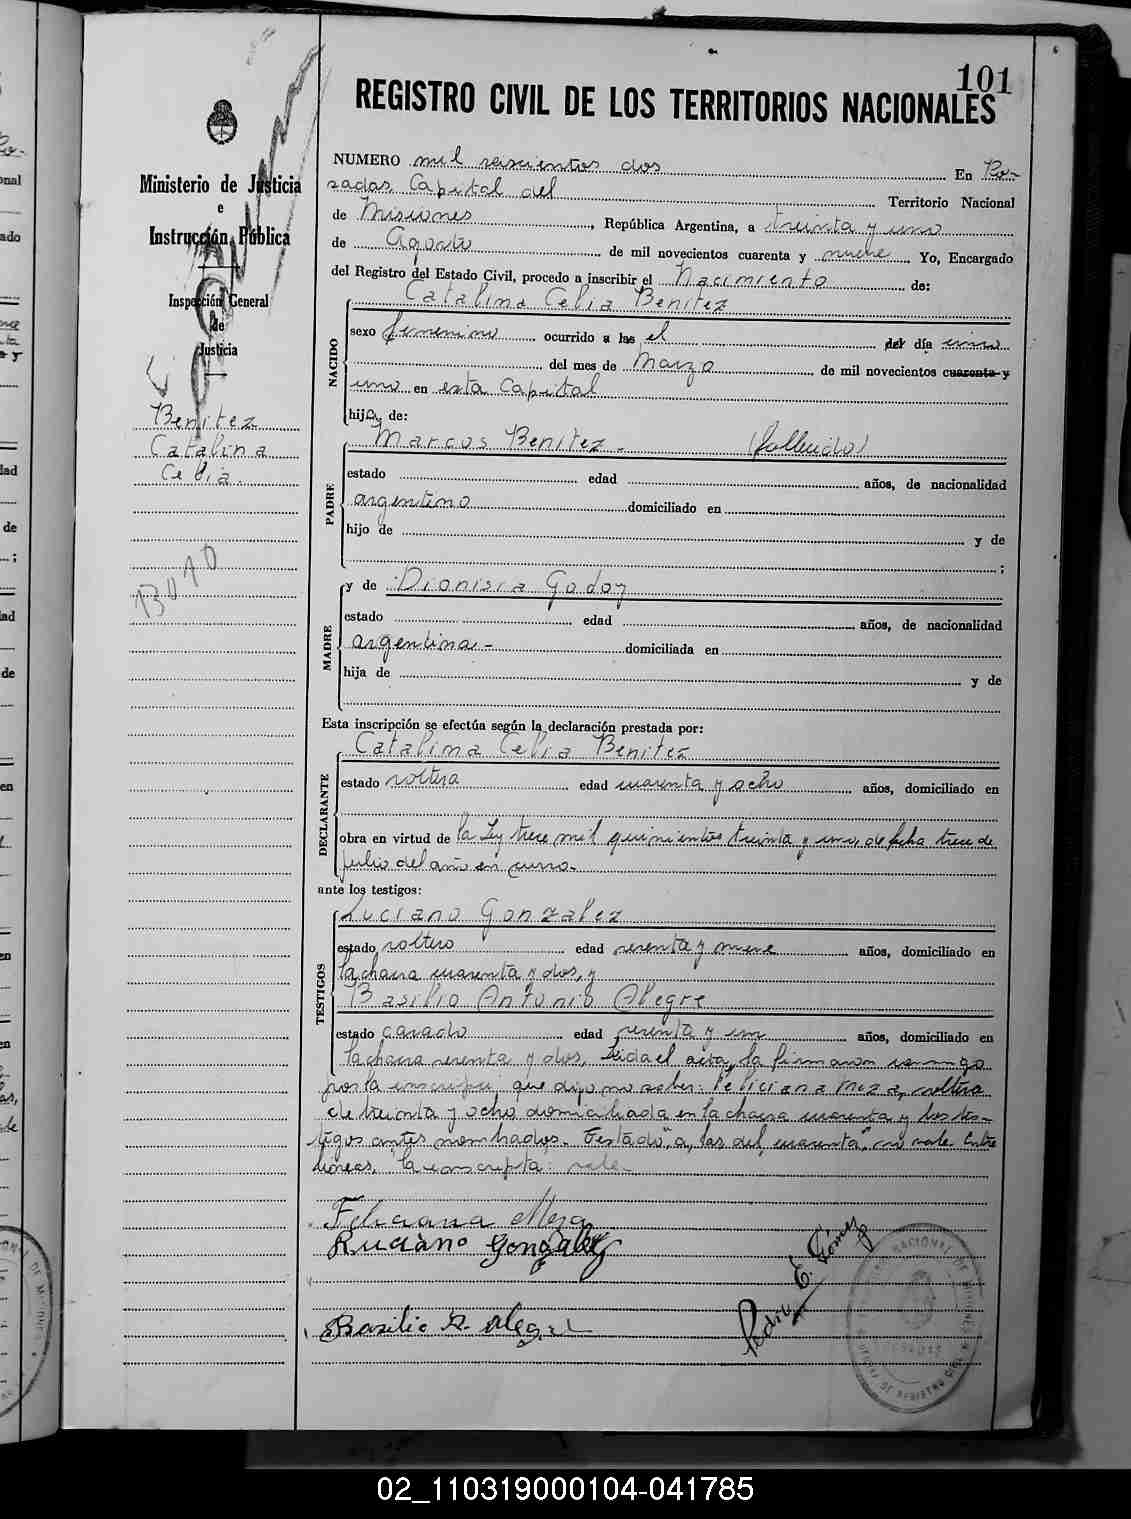 101
REGISTRO CIVIL DE LOS TERRITORIOS NACIONALES
Ministerio de Justicia
e
Instrucción Pública
Inspección General
de
Justicia
Benitez
Catalina
Celia.
13010
NUMERO mil seiscientos dos En Po-
sadas, Capital del Territorio Nacional
de Misiones, República Argentina, a treinta y uno
de Agosto de mil novecientos cuarenta y nueve. Yo, Encargado
del Registro del Estado Civil, procedo a inscribir el Nacimiento de:
NACIDO
Catalina Celia Benitez
sexo femenino ocurrido a las el del día uno
del mes de Marzo de mil novecientos cuarenta y
uno en esta Capital
hija de:
PADRE
Marcos Benitez. (fallecido)
estado edad años, de nacionalidad
argentino domiciliado en
hijo de y de
;
MADRE
y de Dionisia Godoy
estado edad años, de nacionalidad
argentina.- domiciliada en
hija de y de
Esta inscripción se efectúa según la declaración prestada por:
DECLARANTE
Catalina Celia Benitez
estado soltera edad cuarenta y ocho años, domiciliado en
obra en virtud de la Ley trece mil quinientos treinta y uno, de fecha trece de
julio del año en curso.
ante los testigos:
TESTIGOS
Luciano Gonzalez
estado soltero edad sesenta y nueve años, domiciliado en
la chacra cuarenta y dos, y
Basilio Antonio Alegre
estado casado edad sesenta y un años, domiciliado en
la chacra sesenta y dos. Leida el acta, la firmaron conmigo
por la inscripta que dijo no saber: Feliciana Meza, soltera
de treinta y ocho domiciliada en la chacra cuarenta y los tes-
tigos antes nombrados. Testado "a, las del, cuarenta", no vale. Entre
lineas, "la inscripta": vale
Feliciana Meza
Luciano Gonzalez
Basilio A. Alegre
Pedro E. Gómez
02_110319000104-041785